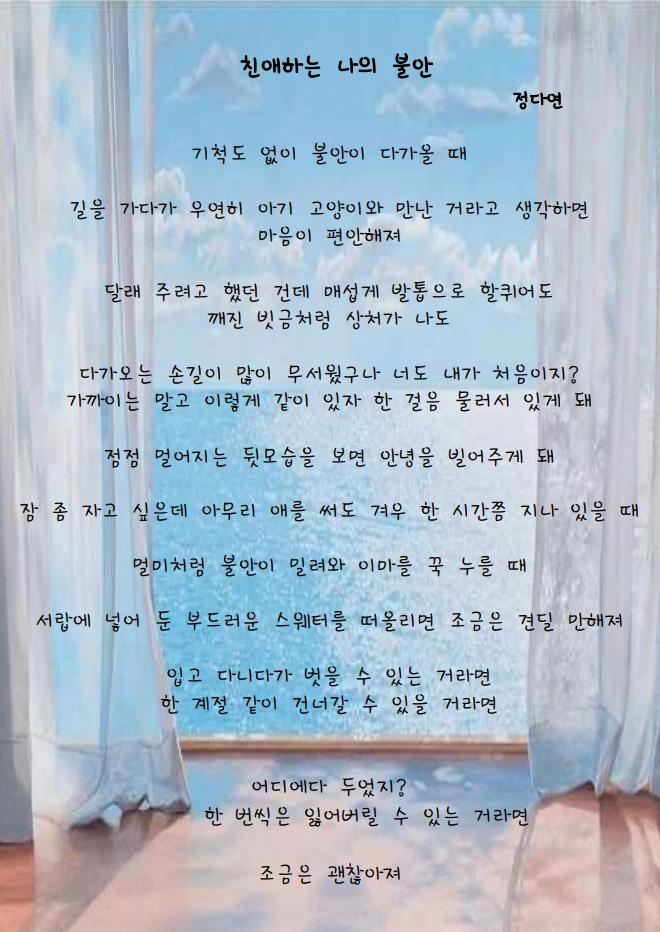 친애하는 나의 불안
정다연
기척도 없이 불안이 다가올 때
길을 가다가 우연히 아기 고양이와 만난 거라고 생각하면
마음이 편안해져
달래 주려고 했던 건데 매섭게 발톱으로 할퀴어도
깨진 빗금처럼 상처가 나도
다가오는 손길이 많이 무서웠구나 너도 내가 처음이지?
가까이는 말고 이렇게 같이 있자 한 걸음 물러서 있게 돼
점점 멀어지는 뒷모습을 보면 안녕을 빌어주게 돼
잠 좀 자고 싶은데 아무리 애를 써도 겨우 한 시간쯤 지나 있을 때
멀미처럼 불안이 밀려와 이마를 꾹 누를 때
서랍에 넣어 둔 부드러운 스웨터를 떠올리면 조금은 견딜 만해져
입고 다니다가 벗을 수 있는 거라면
한 계절 같이 건너갈 수 있을 거라면
어디에다 두었지?
한 번씩은 잃어버릴 수 있는 거라면
조금은 괜찮아져